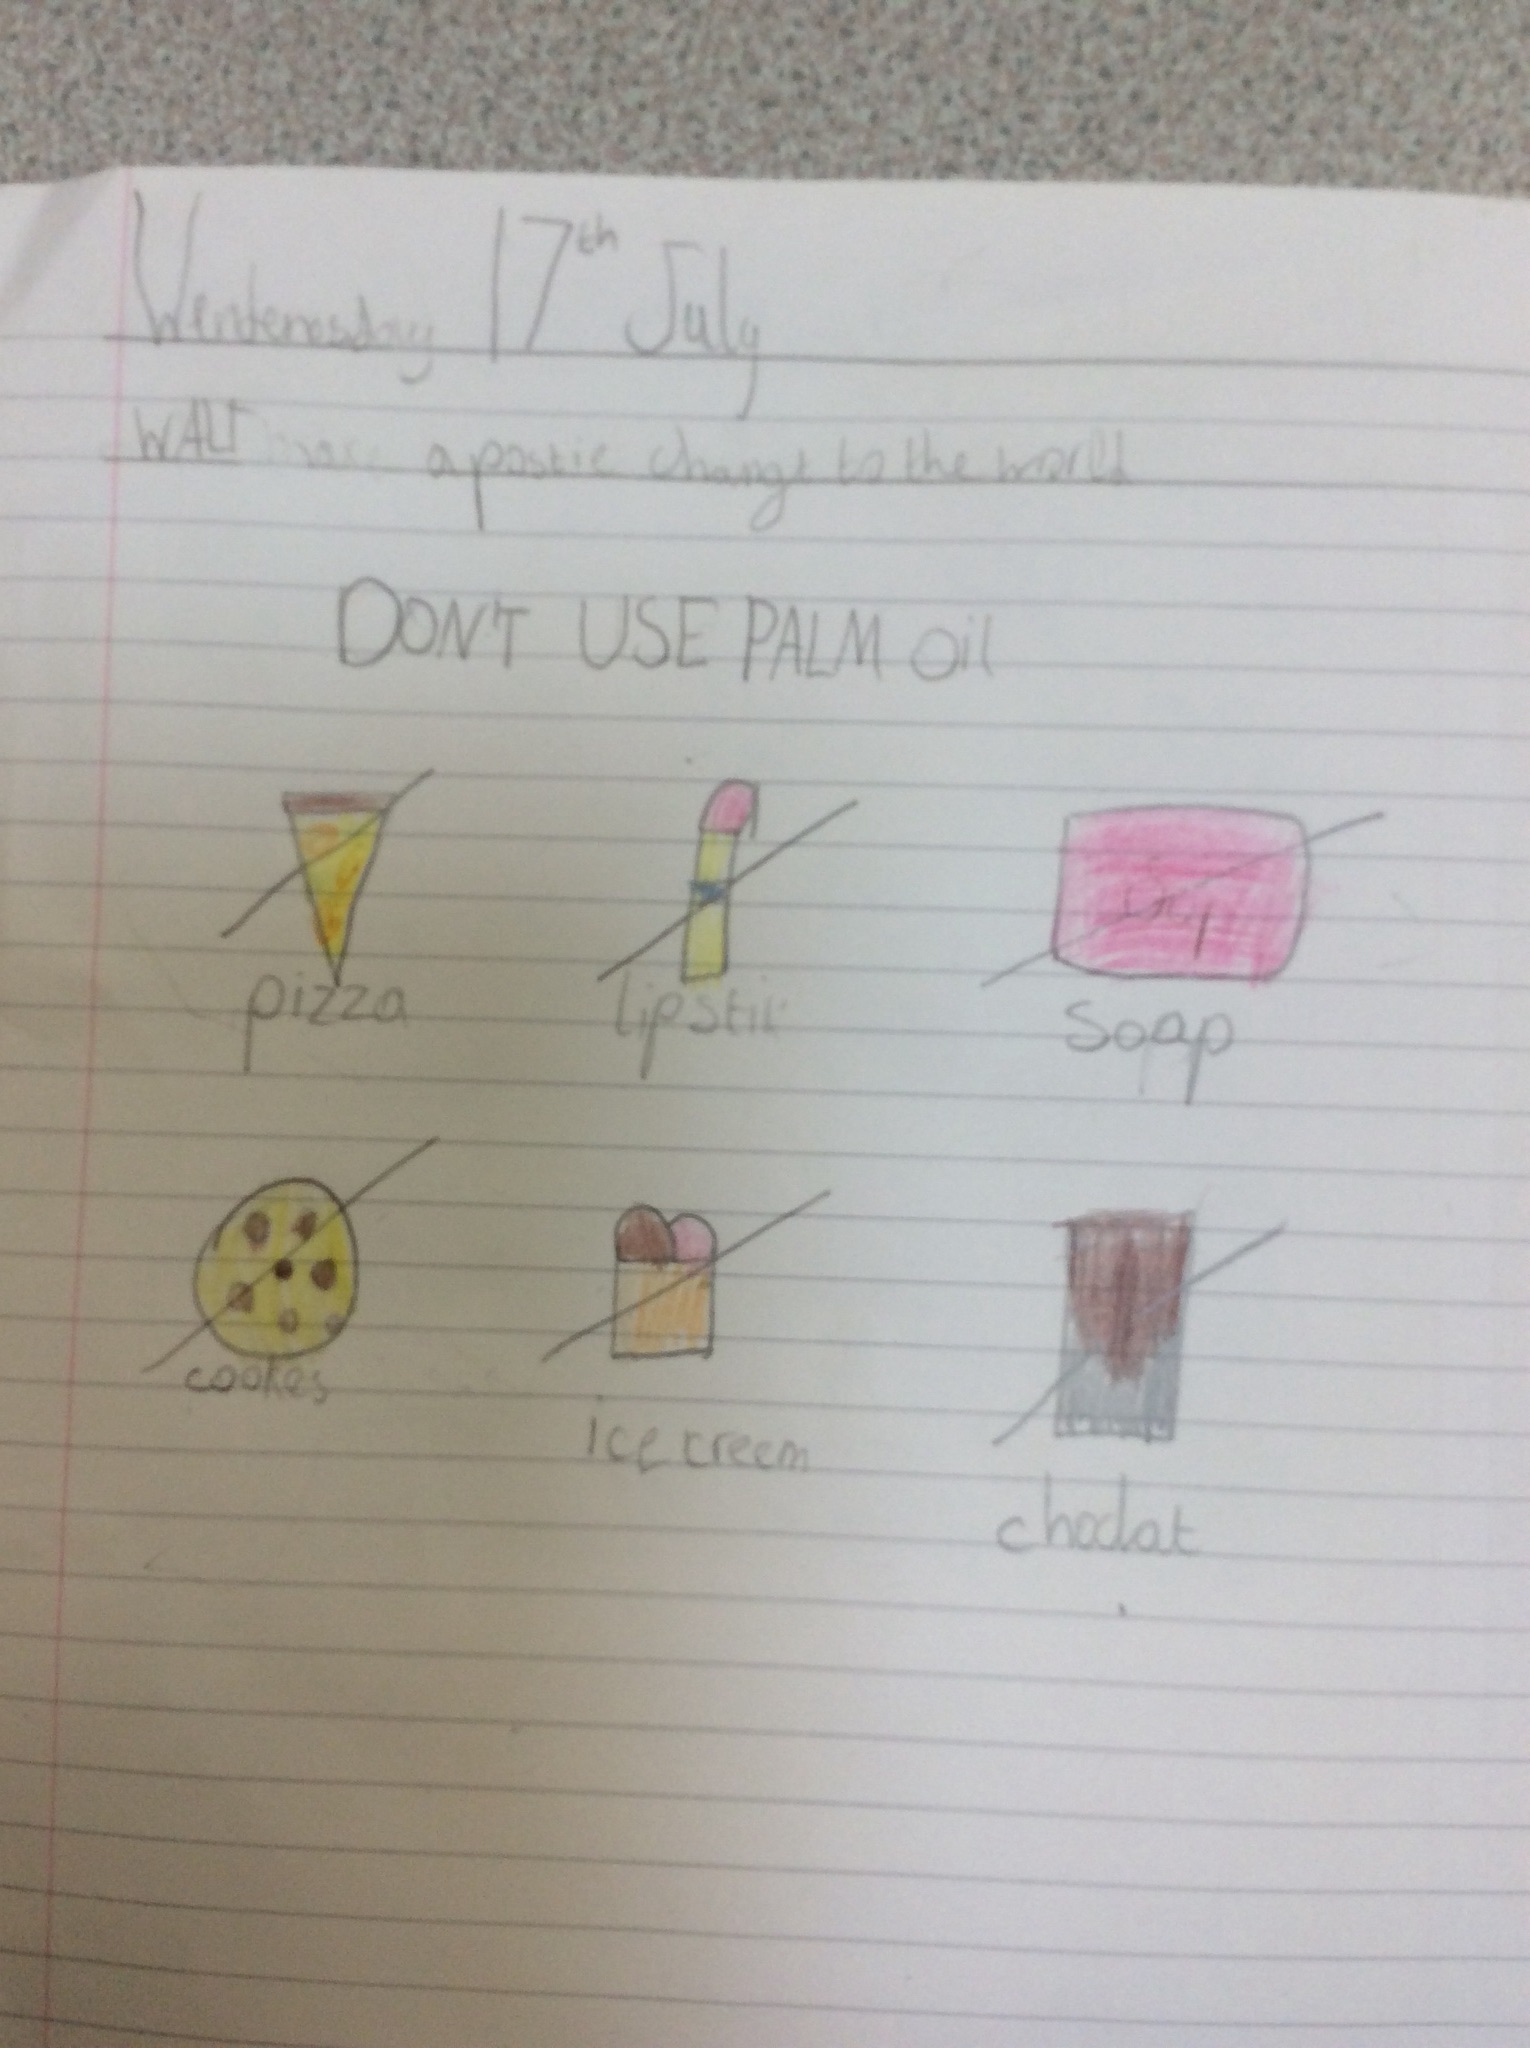 Wentenesday 17th July
WALT a postie change to the world
DON'T USE PALM oil
pizza lipstic soap
cookes ice creem choclat